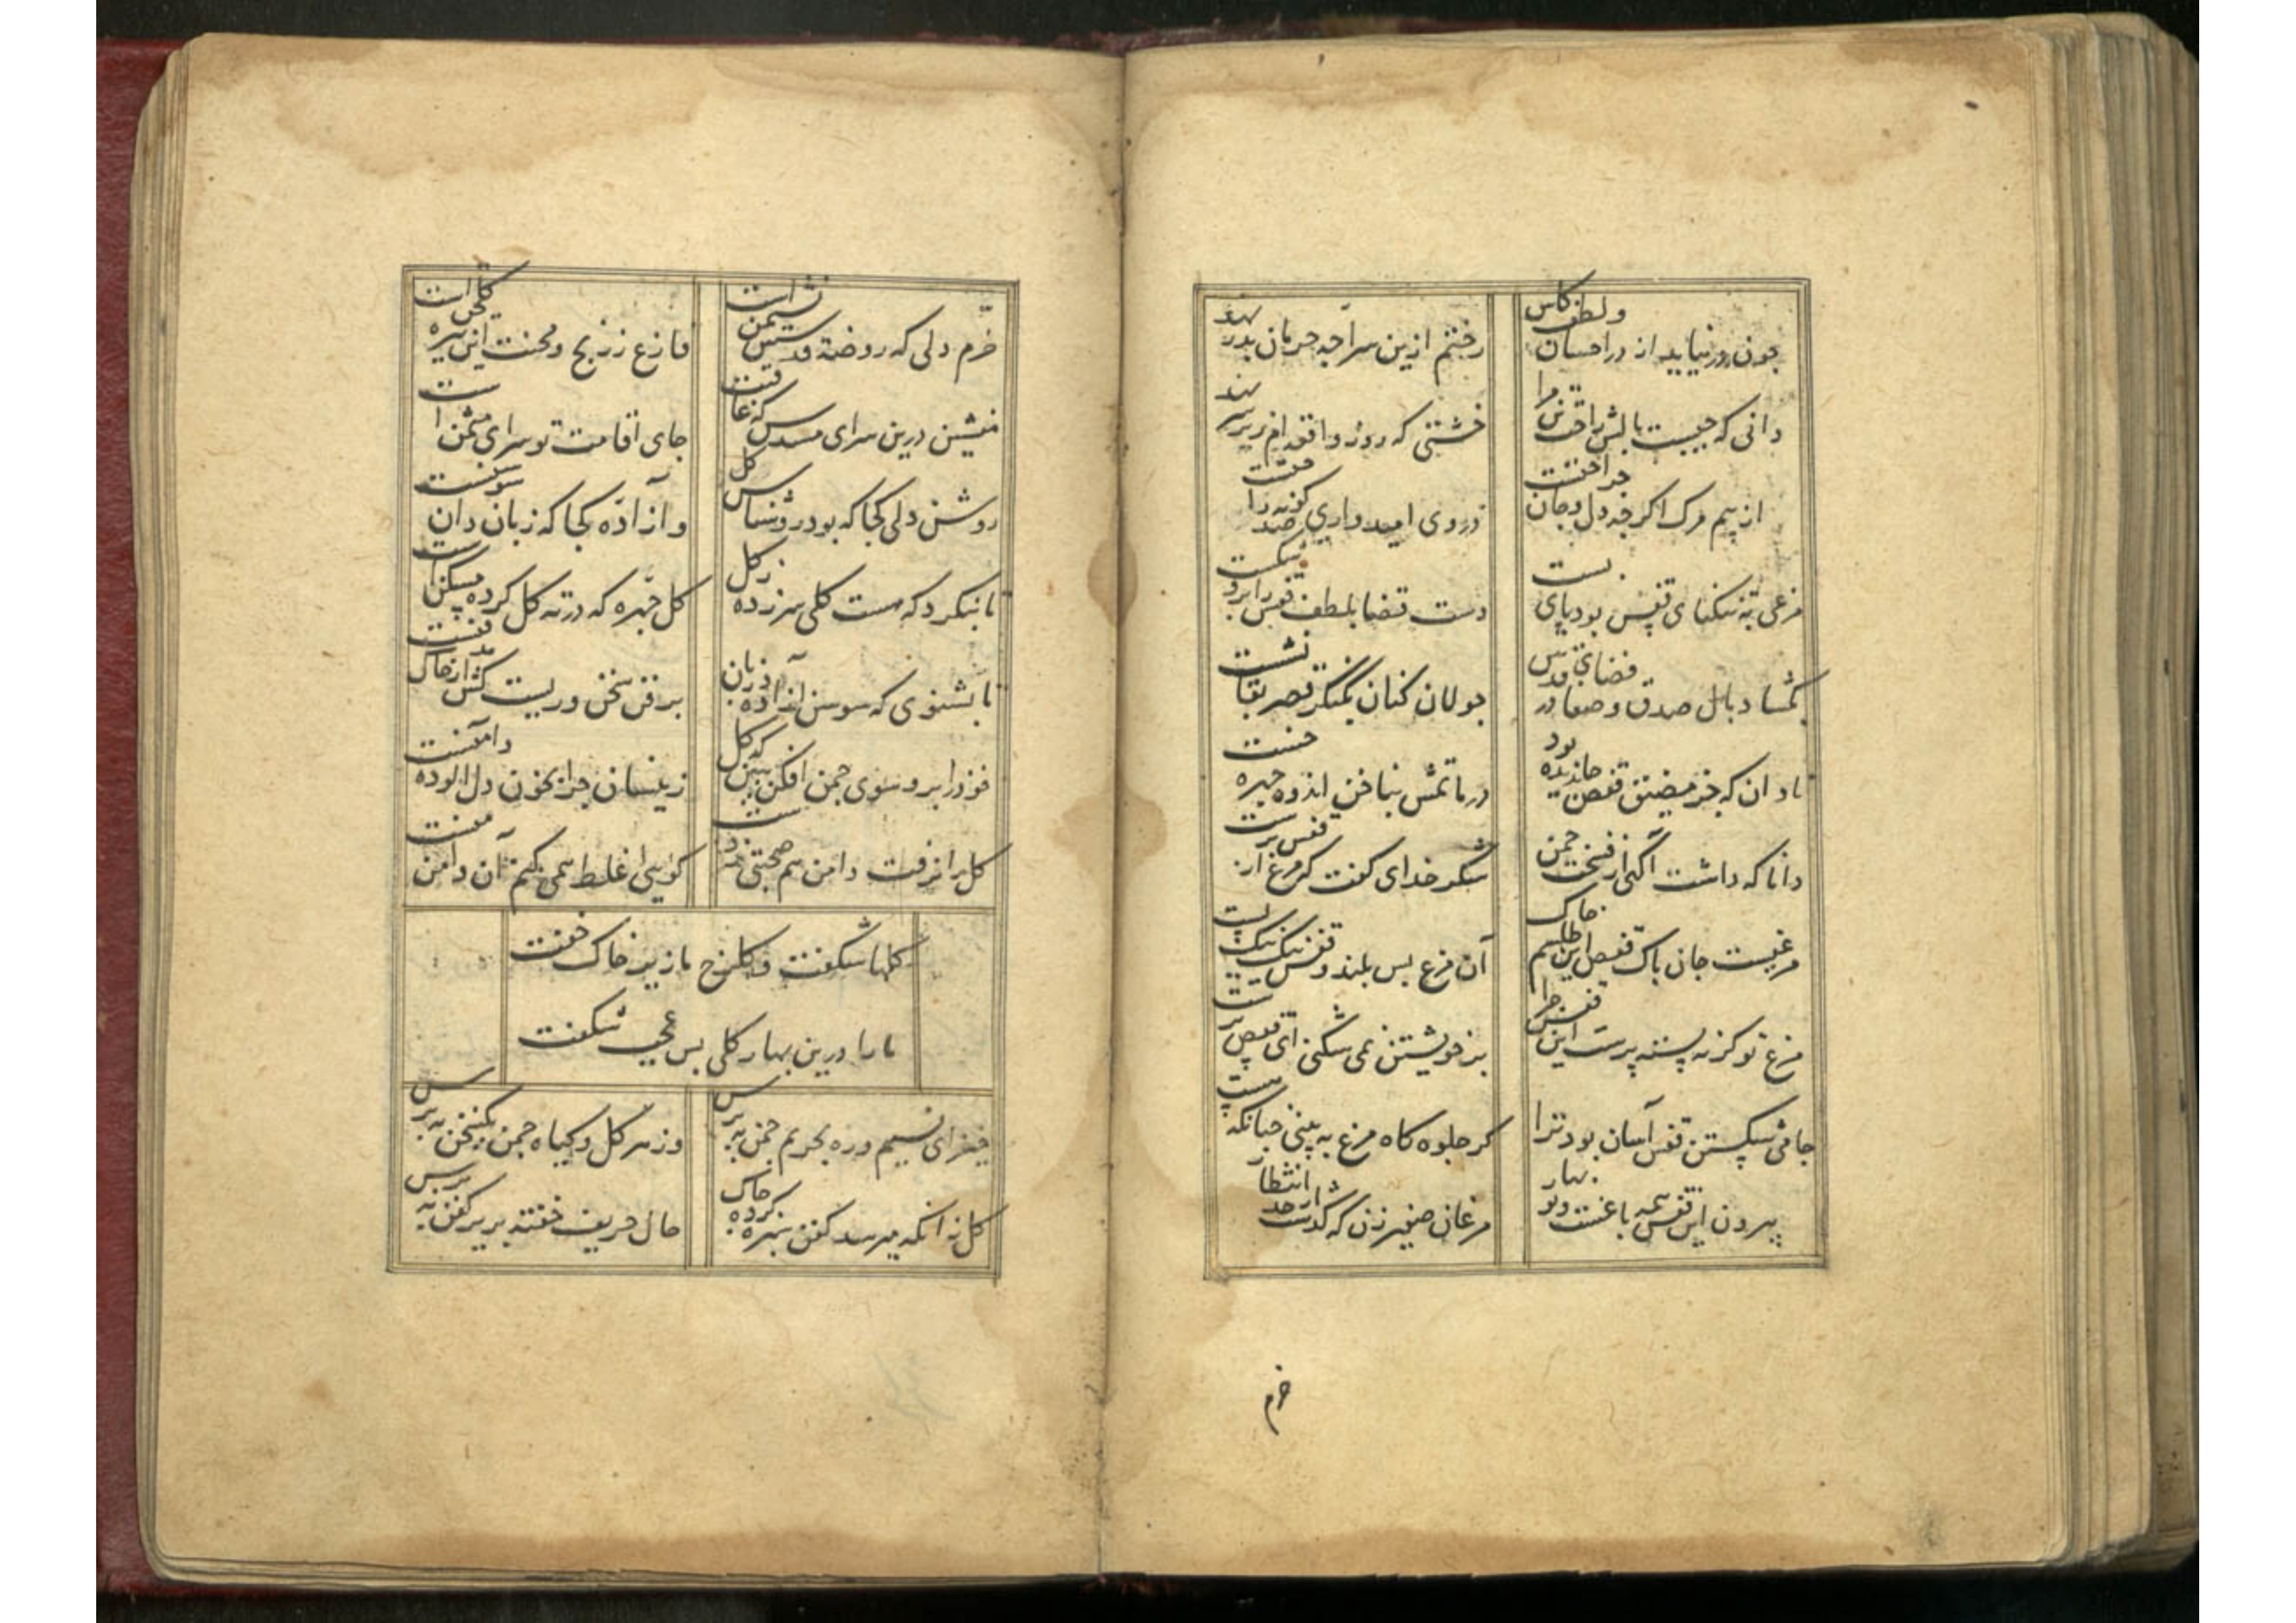 چون روز نیاید از در احسان و لطف کاس
رختم ازین سراچه حرمان بدر نهید
دانی که چیست بالش راحت مرا
خشتی که روز واقعه ام زیر سر نهید
از بیم مرک اکرچه دل و جان جراحتست
در وی امیدواری صد کونه راحتست
مرغی به تنکنای قفس بود پای بست
دست قضا بلطف قفس را برو شکست
بکشاد بال صدق و صفا در فضای قدس
جولان کنان بکنکر قصر بقا نشست
نادان که جز مضیق قفس جا ندیده بود
در ماتمش بناخن اندوه چهره خست
دانا که داشت آکهی از فسحت چمن
شکر خدای کفت که مرغ از قفس برست
مرغیست جان پاک قفس این طلسم خاک
آن مرغ بس بلند و قفس نیک نیک پست
مرغ تو کرنه پسته پرست این قفس چرا
بر خویشتن نمی شکنی ای قفس پرست
جامی شکستن قفس آسان بود ترا
کر جلوه کاه مرغ به بینی چنانکه هست
بیرون این قفس همه باغست و نو بهار
مرغان صفیر زن که کذشت از حد انتظار
خرم
خرم دلی که روضه قدسش نشیمن است
فارغ ز رنج و محنت این تیره کلخن است
منشین درین سرای مسدس که عاقبت
جای اقامت تو سرای مثمن است
روشن دلی کجا که بود روشناس کل
و آزاده کجا که زبان دان سوسنست
تا بنکرد که هست کلی سر زده ز کل
کل چهره که در ته کل کرده مسکن است
تا بشنوی که سوسن آزاده در زبان
بر فن سخن وریست کش از خاک مدفنست
خود را برو سوی چمن افکن ببین که کل
زینسان چرا بخون دل الوده دامنست
کل را نرفت دامن هم صحبتی ز دست
کویی غلط همی کنم آن دامن منست
کلها شکفت و کلرخ ما زیر خاک خفت
ما را درین بهار کلی بس عجب شکفت
خیز ای نسیم و ره بحریم چمن بپرس
وز هر کل و کیاه چمن یک سخن بپرس
کل زانکه میرسد کفن سبزه کرده چاک
حال حریف خفته بزیر کفن بپرس